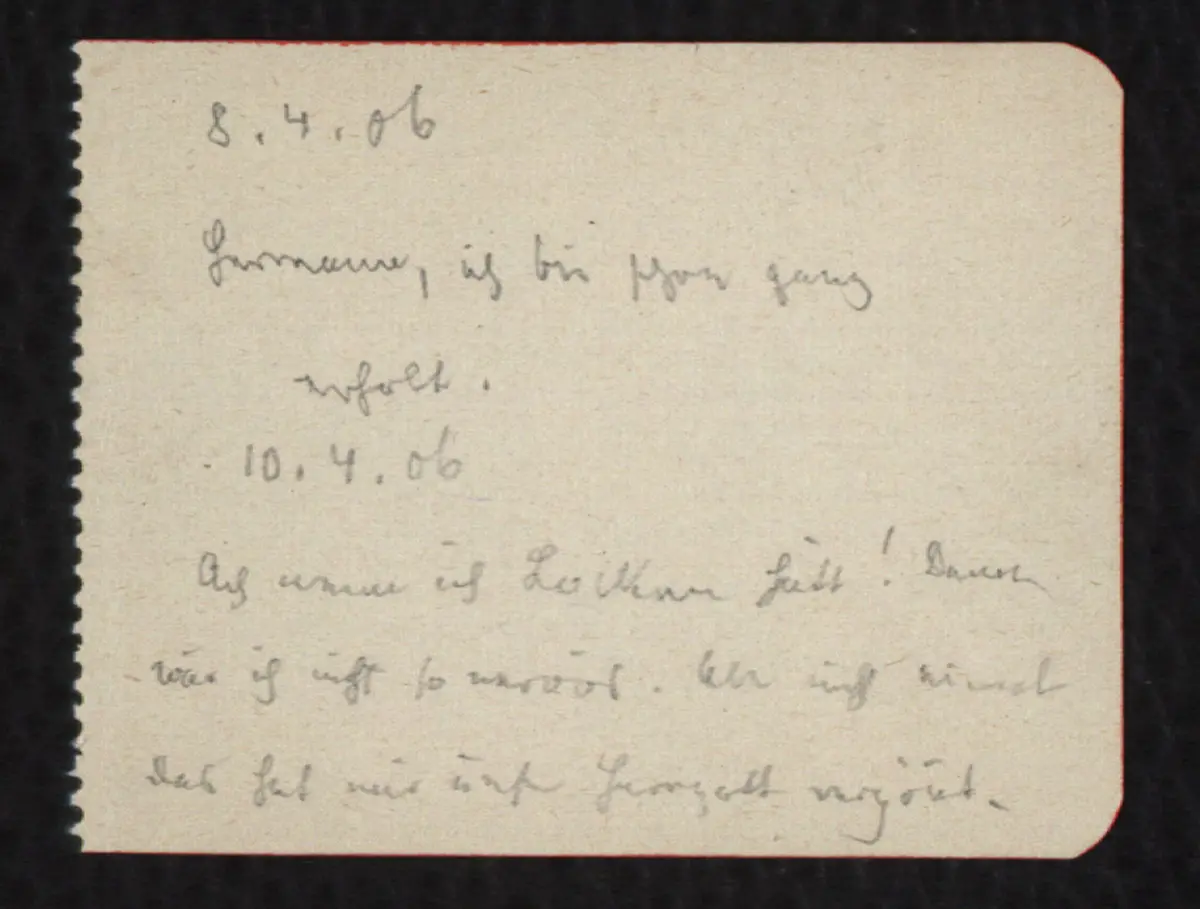 8.4.06
Hermann, ich bin schon ganz
erholt.
10.4.06
Ach wenn ich Locken hätt! Dann
wär ich nicht so nervös. Aber nicht einmal
das hat mir unser Herrgott vergönnt.